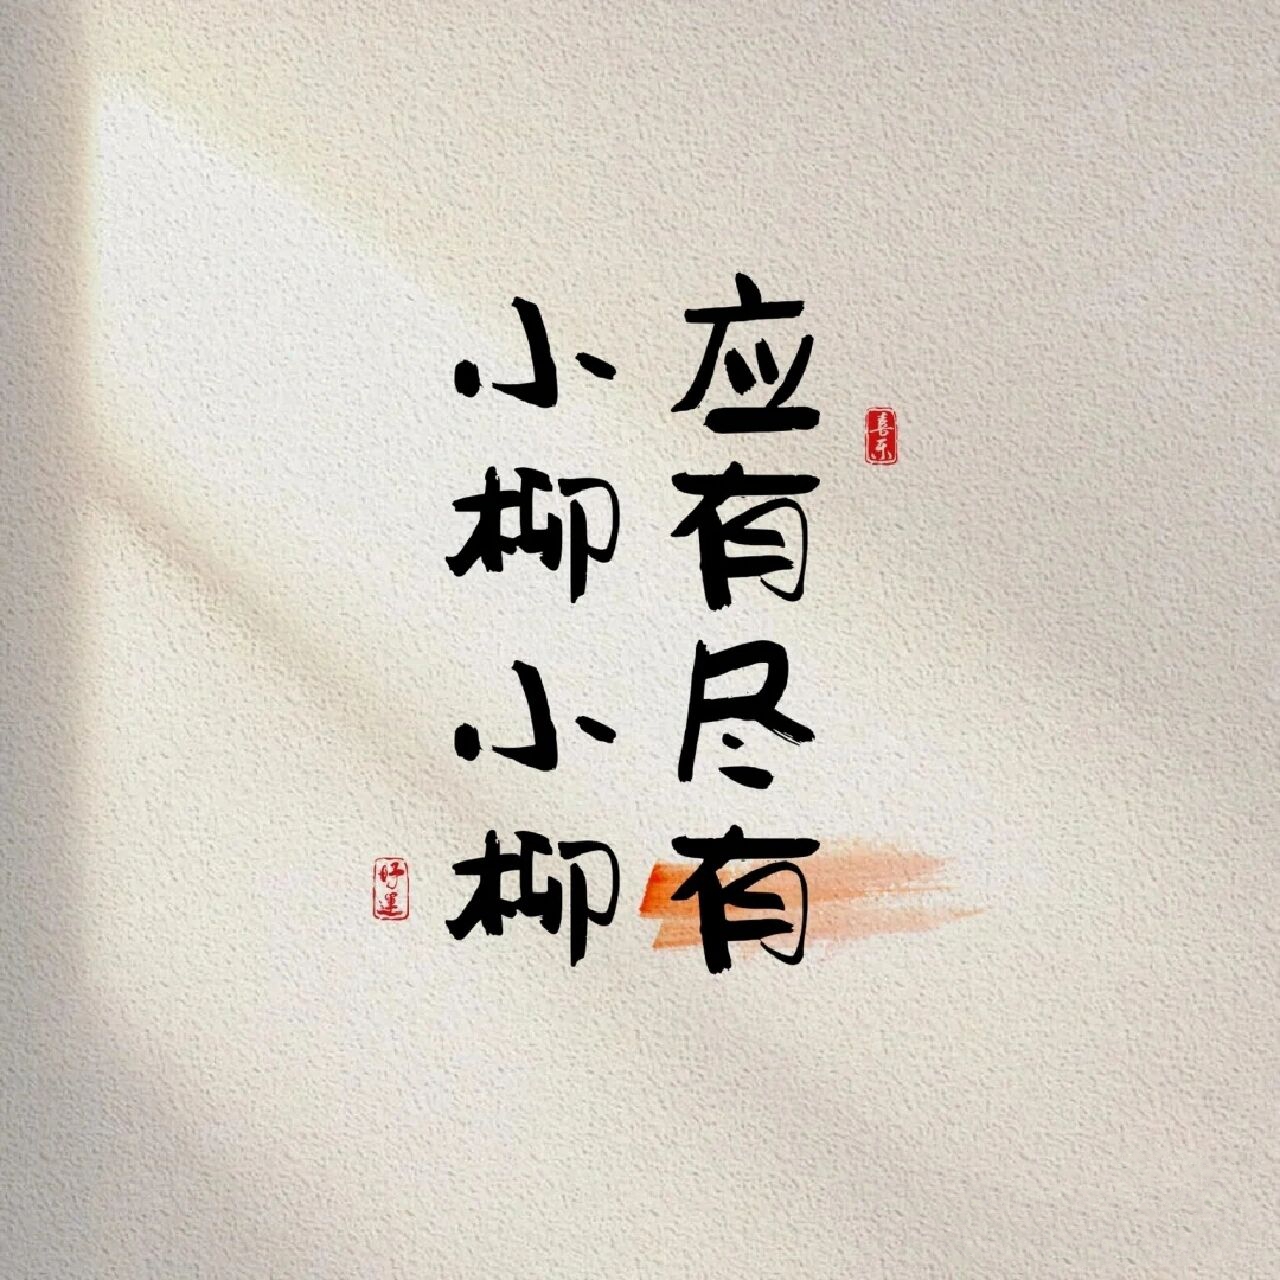 喜乐
应有尽有
小柳小柳
好运